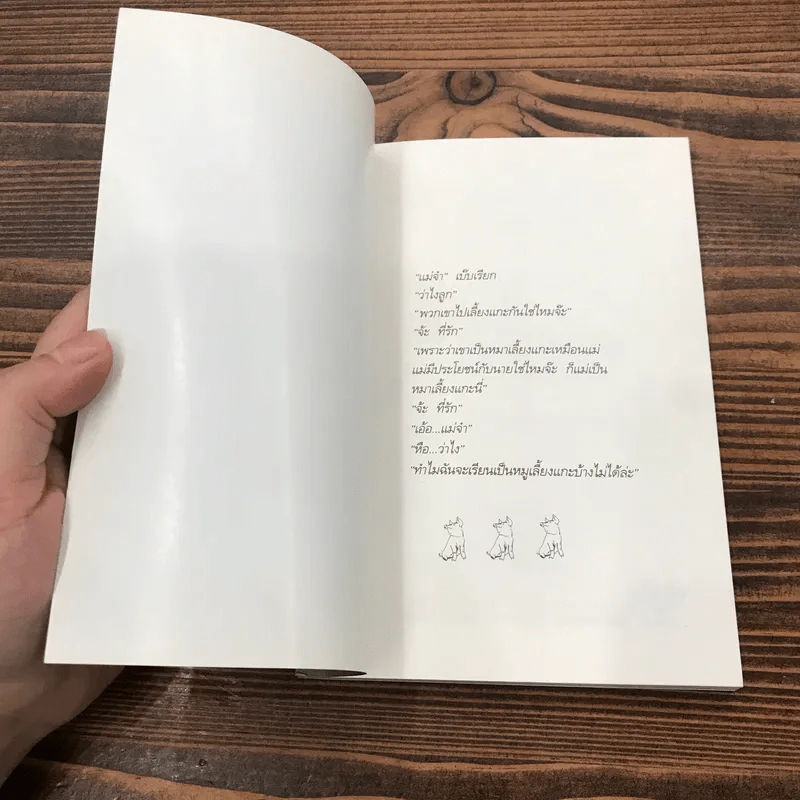 "แม่จ๋า"  เบ๊บเรียก
"ว่าไงลูก"
"พวกเขาไปเลี้ยงแกะกันใช่ไหมจ๊ะ"
"จ้ะ  ที่รัก"
"เพราะว่าเขาเป็นหมาเลี้ยงแกะเหมือนแม่
แม่มีประโยชน์กับนายใช่ไหมจ๊ะ  ก็แม่เป็น
หมาเลี้ยงแกะนี่"
"จ้ะ  ที่รัก"
"เอ้อ...แม่จ๋า"
"หือ...ว่าไง"
"ทำไมฉันจะเรียนเป็นหมูเลี้ยงแกะบ้างไม่ได้ล่ะ"